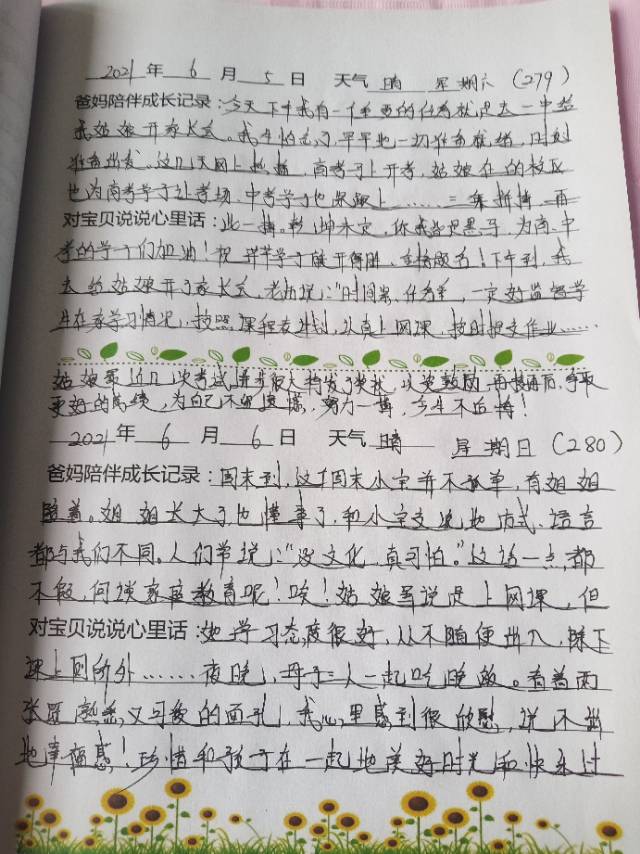 2021 年 6 月 5 日 天气 晴 星期六 (279)
爸妈陪伴成长记录:今天下午我有一个重要的任务就是去一中给
我姑娘开家长会。我生怕忘了早早地一切准备就绪,时刻
准备出发。这几天网上热播,高考马上开考,姑娘在的校区
也为高考学子让考场,中考学子也紧跟上……三年拼搏一西
对宝贝说说心里话:此一搏,乾坤未定,你我皆是黑马,为高、中
考的学子们加油!祝 莘莘学子旗开得胜、金榜题名!下午到,我
去给姑娘开了家长会,老师说:“时间紧,任务重,一定好监督学
生在家学习情况,按照课程表计划,认真上网课,按时提交作业……
姑娘虽近几次考试,进步很大,得发了奖状,以资鼓励,再接再厉,争取
更好的成绩,为自己不留遗憾,努力一搏,今生不后悔!
2021 年 6 月 6 日 天气 晴 星期日 (280)
爸妈陪伴成长记录:周末到,这个周末小宝并不孤单,有姐姐
陪着。姐姐长大了,也懂事了,和小宝交流地方式、语言
都与我们不同。人们常说:“没文化,真可怕。”这话一点都
不假,何谈家庭教育呢!唉!姑娘虽说是上网课,但
对宝贝说说心里话:她学习态度很好,从不随便出入,除下
课上厕所外……夜晚,母子三人一起吃晚饭。看着两
张既熟悉,又可爱的面孔,我心里感到很欣慰,说不出
地幸福感!珍惜和孩子在一起地美好时光和快乐过